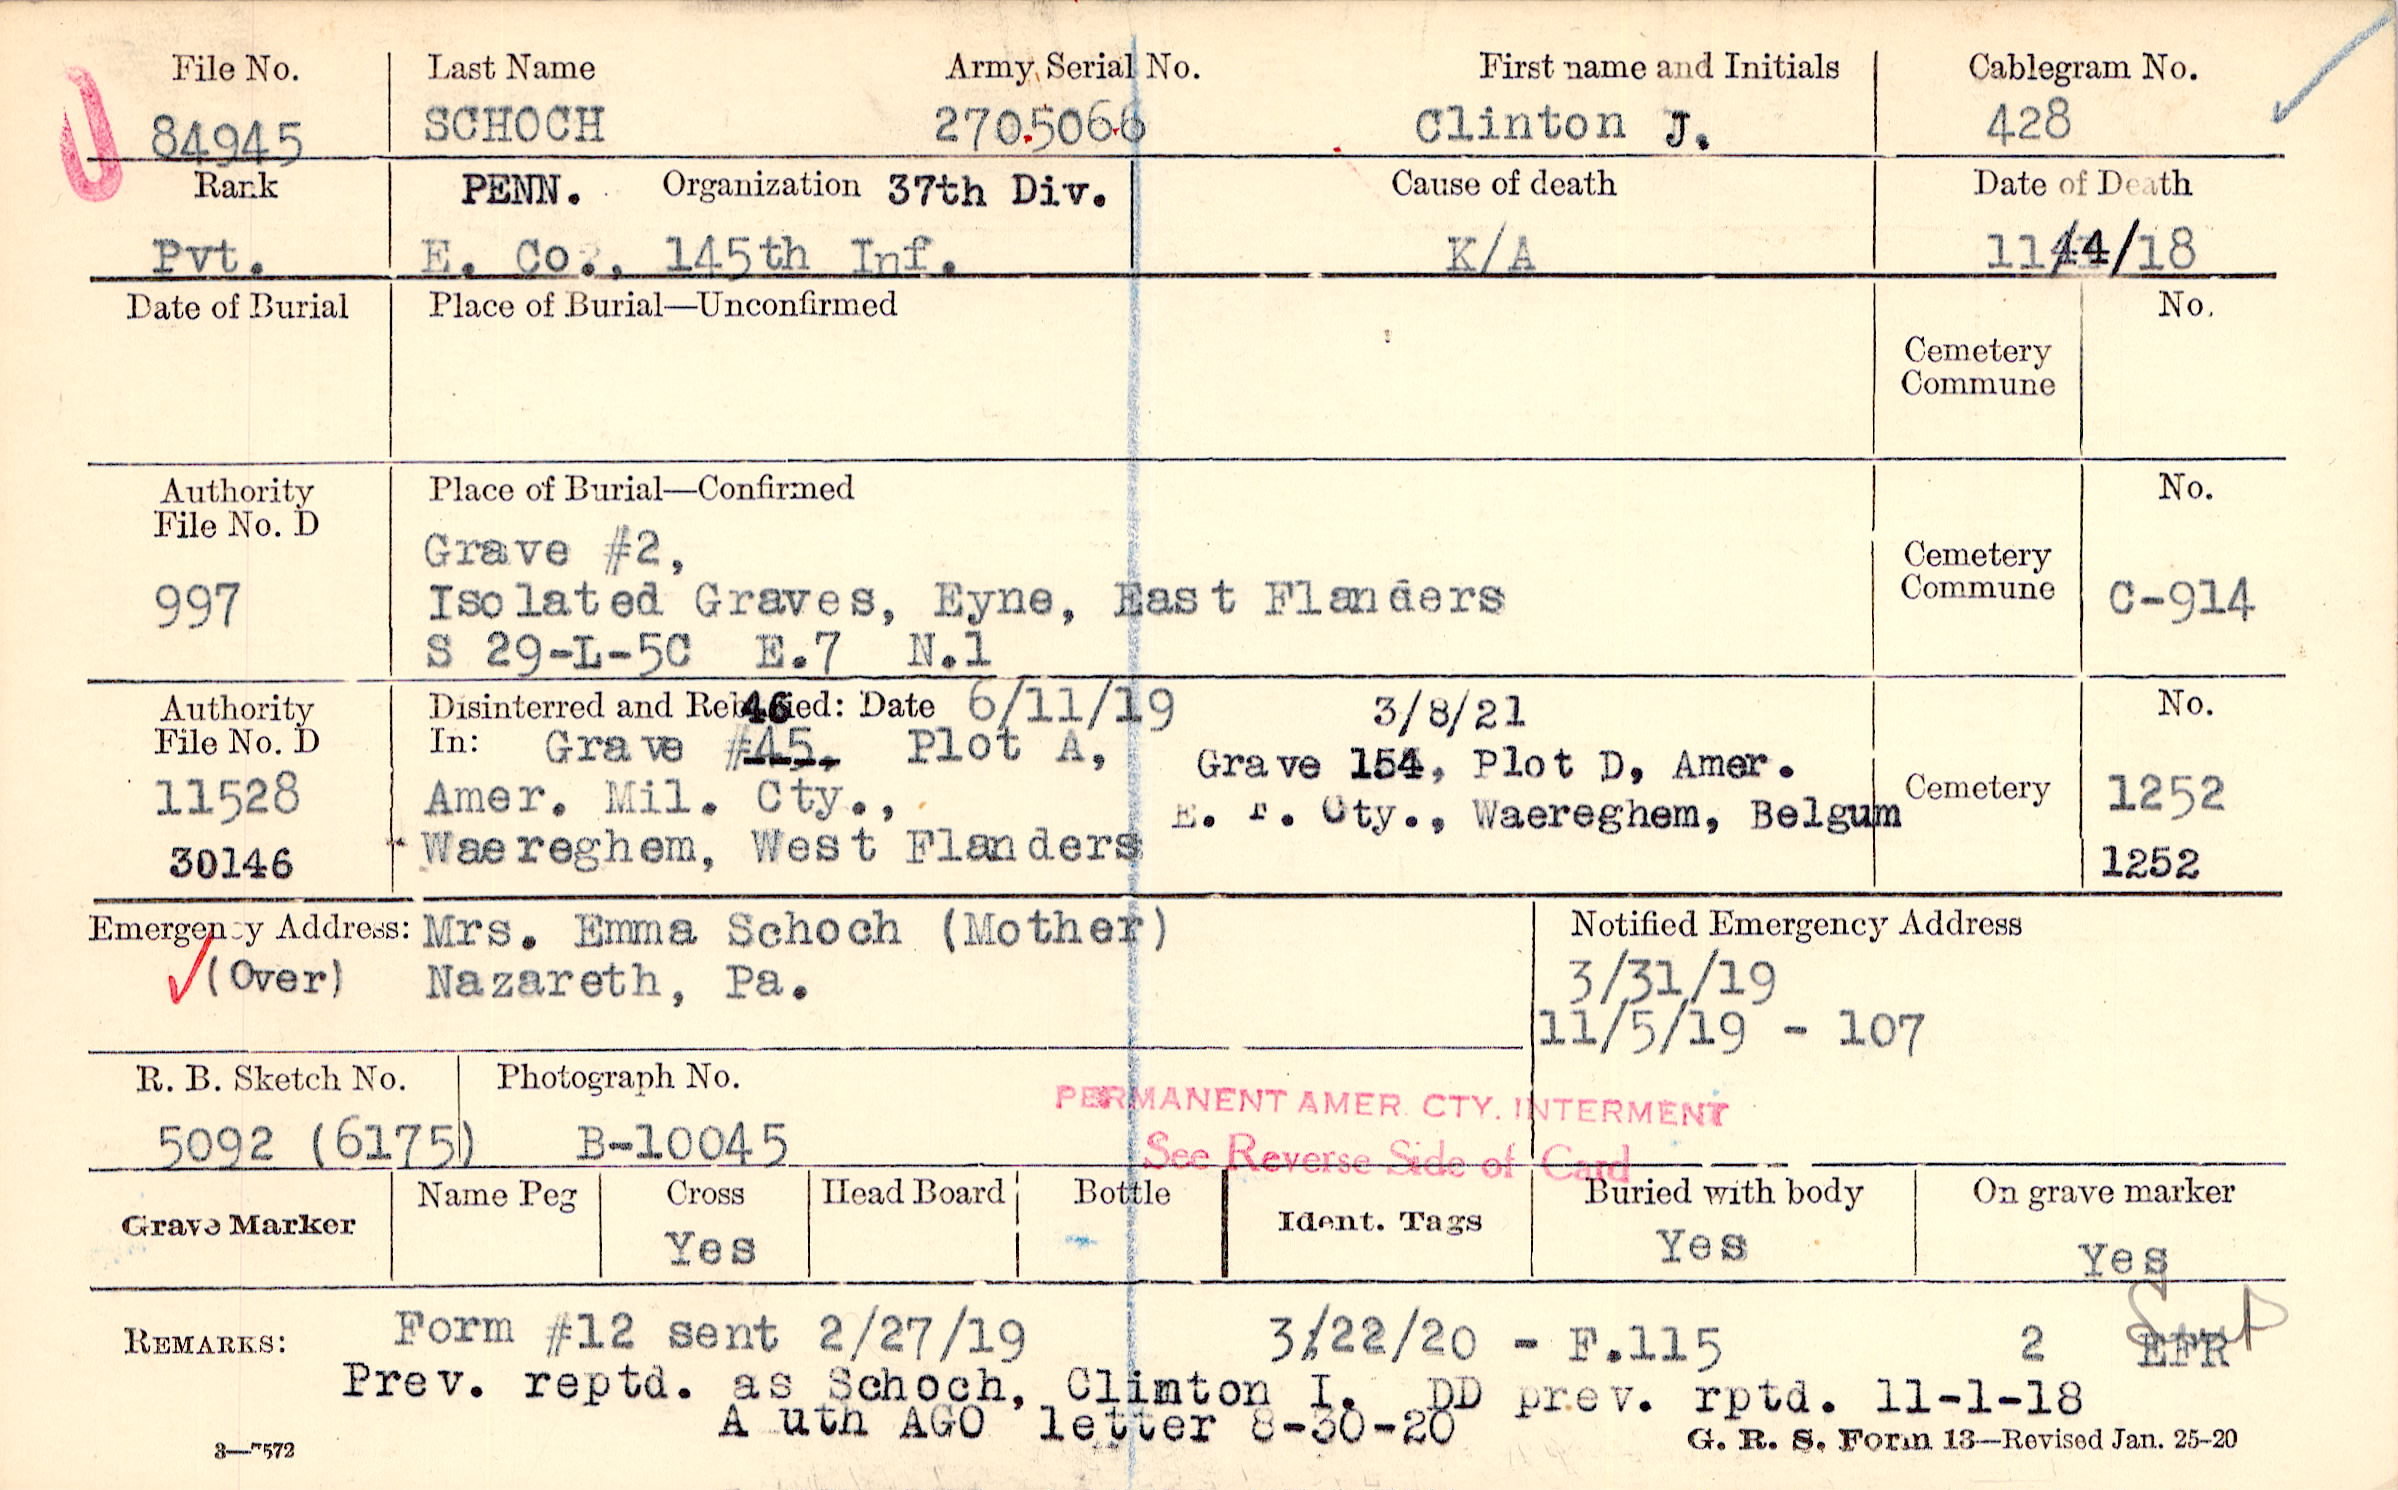 File No. Last Name Army Serial No. First name and Initials Cablegram No.
84945 SCHOCH 2705066 Clinton J. 428
Rank PENN. Organization 37th Div. Cause of death Date of Death
Pvt. E. Co., 145th Inf. K/A 11/4/18
Date of Burial Place of Burial—Unconfirmed No.
Cemetery
Commune
Authority Place of Burial—Confirmed No.
File No. D
Grave #2,
Cemetery
Commune
997 Isolated Graves, Eyne, East Flanders C-914
S 29-L-5C E.7 N.1
Authority Disinterred and Reburied: Date 6/11/19 3/8/21 No.
46
File No. D In: Grave #45, Plot A, Grave 154, Plot D, Amer.
11528 Amer. Mil. Cty., E. F. Cty., Waereghem, Belgum Cemetery 1252
30146 Waereghem, West Flanders 1252
Emergency Address: Mrs. Emma Schoch (Mother) Notified Emergency Address
(Over) Nazareth, Pa. 3/31/19
11/5/19 - 107
R. B. Sketch No. Photograph No.
PERMANENT AMER. CTY. INTERMENT
5092 (6175) B-10045
See Reverse Side of Card
Grave Marker Name Peg Cross Head Board Bottle Ident. Tags Buried with body On grave marker
Yes Yes Yes
REMARKS: Form #12 sent 2/27/19 3/22/20 - F.115 2 EFR
Prev. reptd. as Schoch, Clinton I. DD prev. rptd. 11-1-18
A uth AGO letter 8-30-20
3—7572 G. R. S. Form 13—Revised Jan. 25-20